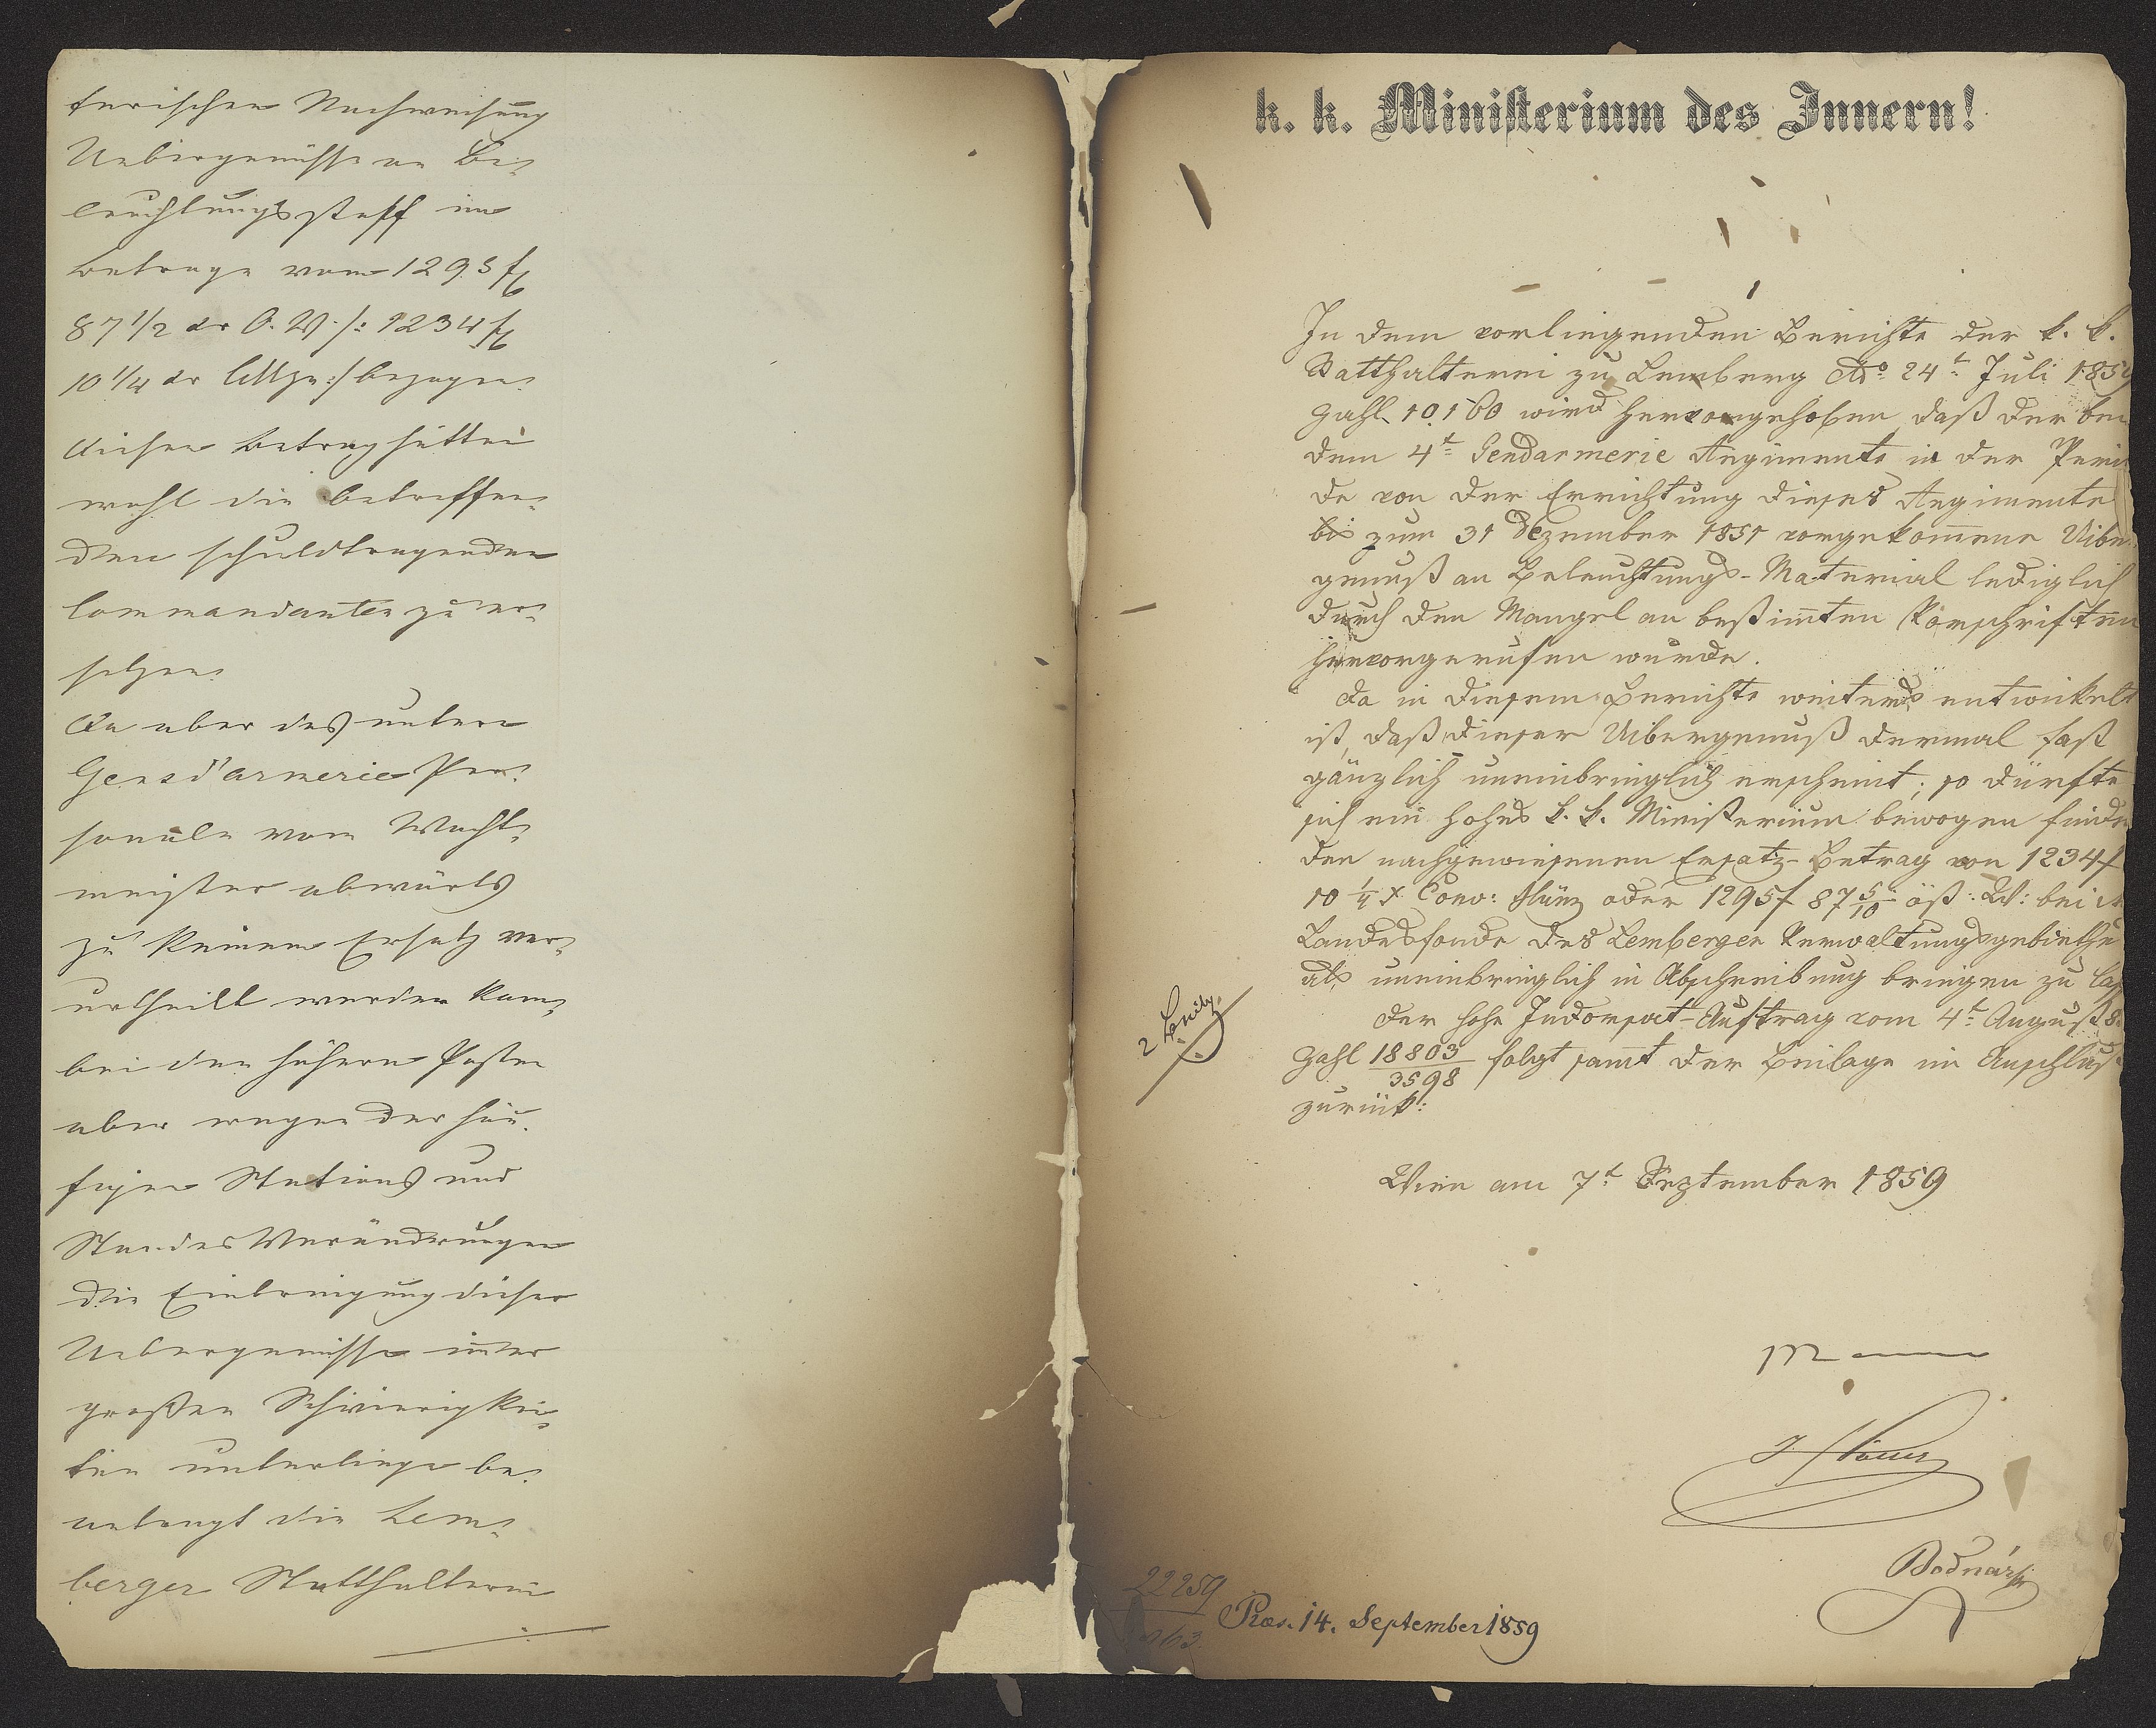 turischen Nachweisung
Uebergenüsse an Be-
leuchtungsstoff im
Betrage vom 1295 f
87 1/2 xr O. W. /: 1234 f
10 1/4 xr CMze :/ bezogen.
Diesen Betrag hätten
wohl die betreffen-
den schuldtragenden
Commandanten zu er-
setzen.
Da aber das untere
Gensd'armerie Per-
sonale vom Wacht-
meister abwärts
zu keinem Ersatz ver-
urtheilt werden kann,
bei den höhern Posten
aber wegen der häu-
figen Stations und
Standes Verändrungen
die Einbringung dieser
Uebergenüsse immer
großen Schwierigkei-
ten unterliege be-
antragt die Lem-
berger Statthalterei
k. k. Ministerium des Innern!
In dem vorliegenden Berichte der k. k.
Statthalterei zu Lemberg ddo 24t Juli 1859
Zahl 10160 wird hervorgehoben, daß der bei
dem 4t Gendarmerie Regimente in der Perio
de von der Errichtung dieses Regimentes
bis zum 31 Dezember 1851 vorgekom̅ene Uiber
genuß an Beleuchtungs-Material lediglich
durch den Mangel an bestim̅ten Vorschriften
hervorgerufen wurde.
Da in diesem Berichte weiters entwickelt
ist, daß dieser Uibergenuß dermal fast
gänzlich uneinbringlich erscheint; so dürfte
sich ein hohes k. k. Ministerium bewogen finden
den nachgewiesenen Ersatz-Betrag von 1234 f
10 1/4 x Conv: Münz oder 1295 f 87 5/10 öst: W: bei
Landesfonde des Lemberger Verwaltungsgebiethe
als uneinbringlich in Abschreibung bringen zu
Der hohe Indorsat-Auftrag vom 4t August
Zahl 18803/3598 folgt sam̅t der Beilage im Anschluß
zurück:
2
Wien am 7t September 1859
Bodnár
22259
Præs. 14. September 1859